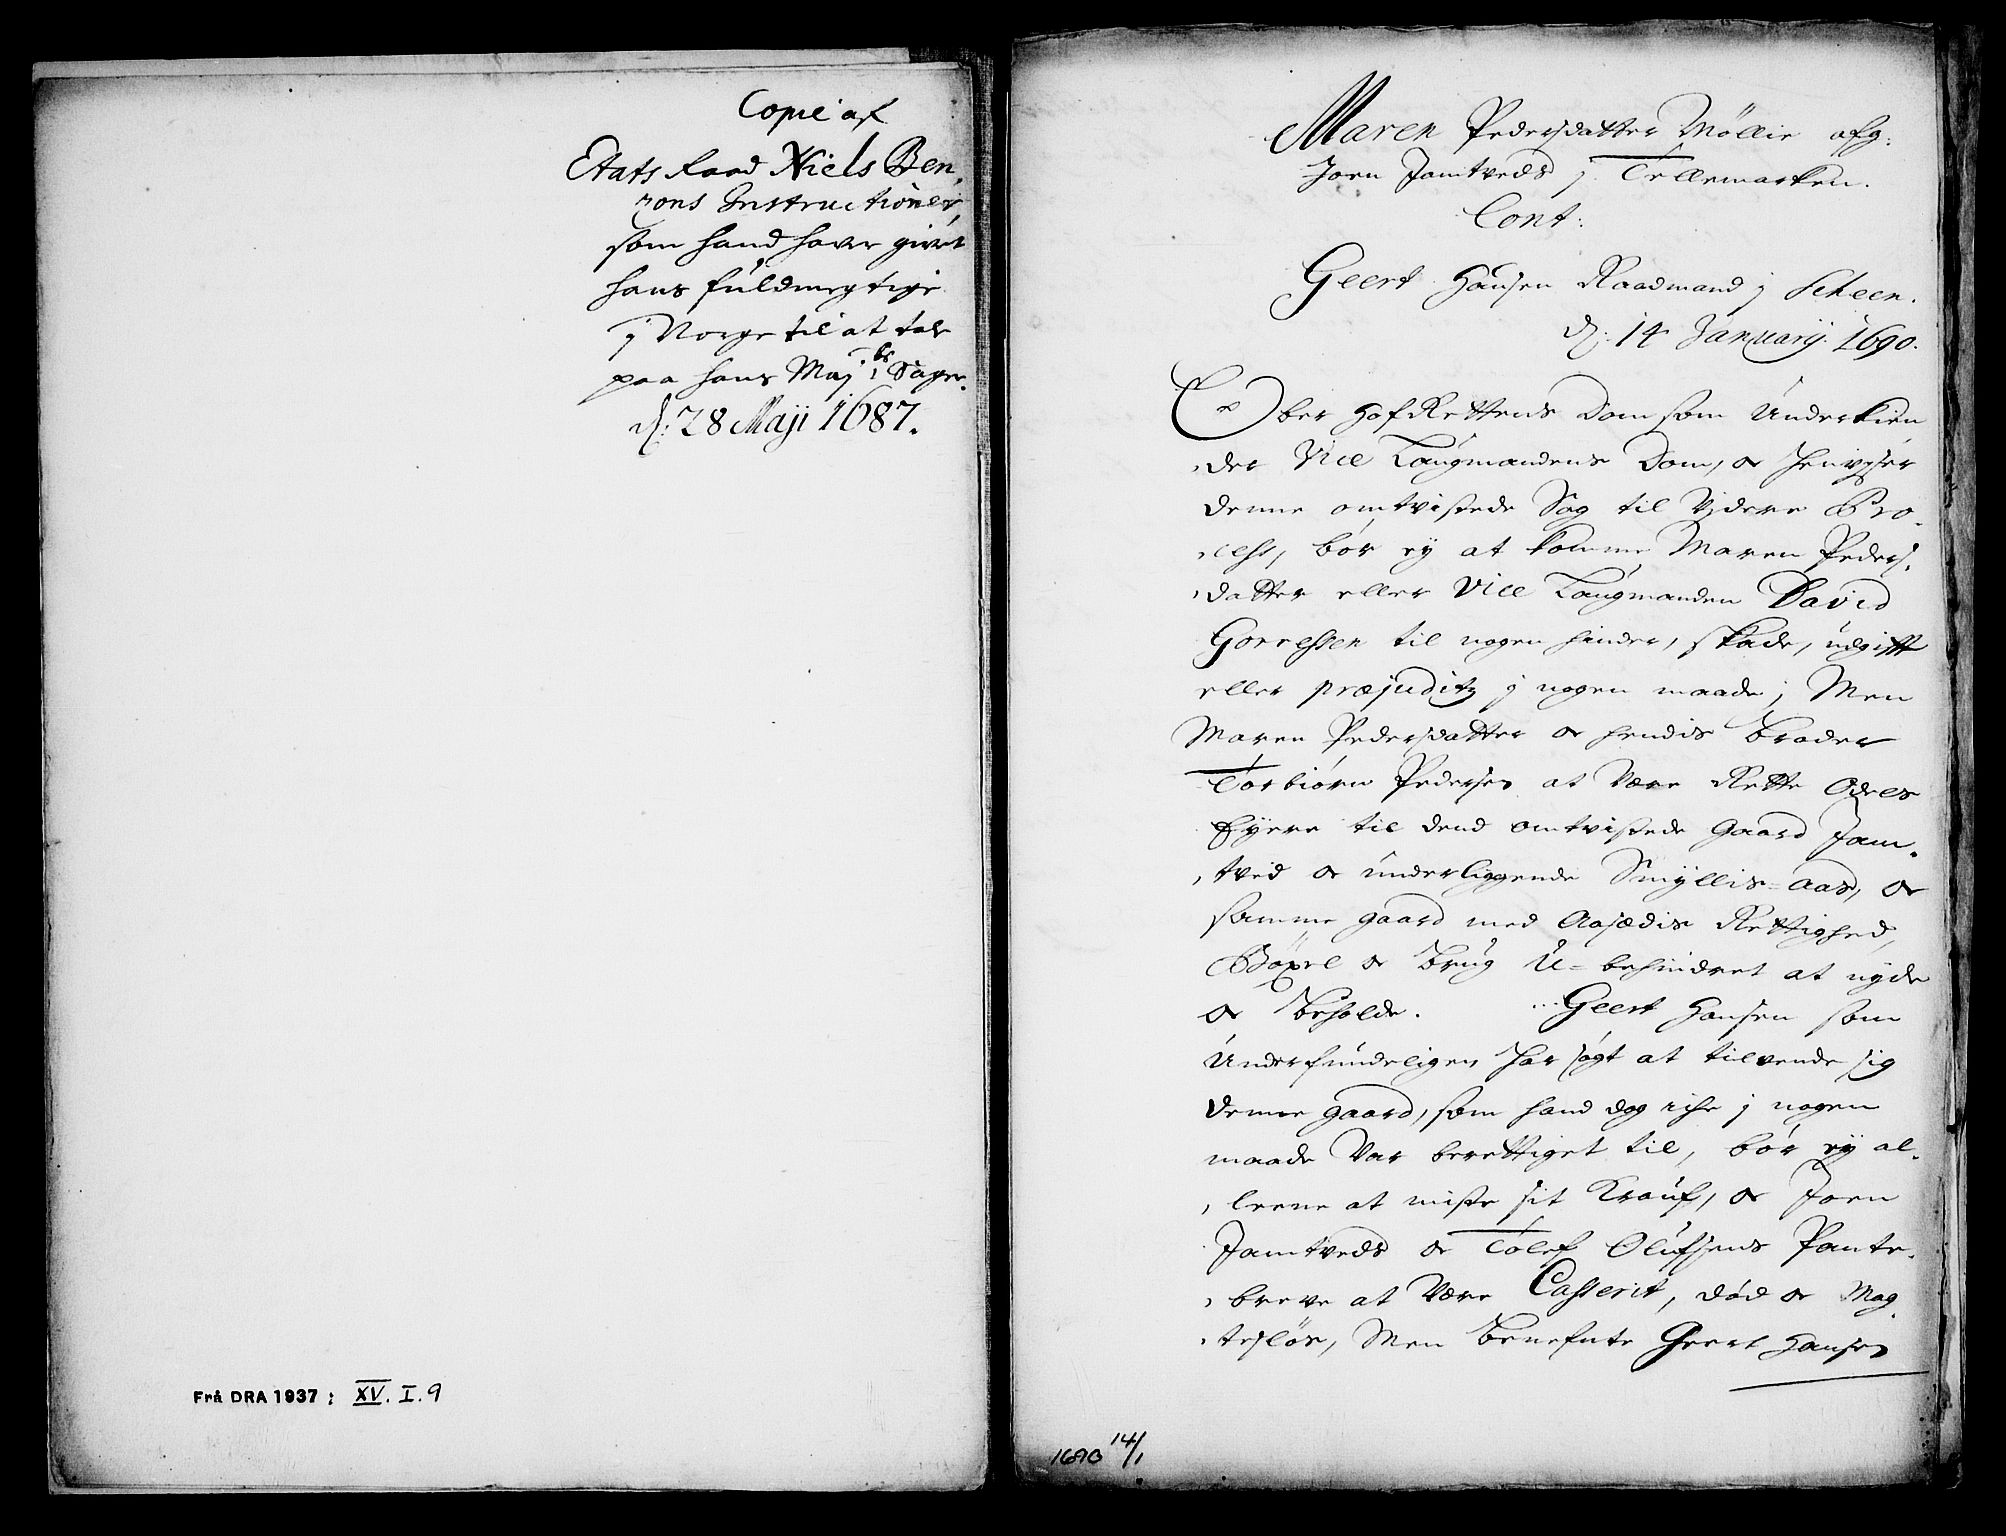 Copie af
Etats Raad Niels Ben,
zons Instructioner,
som hand haver givet
hans fuldmegtige
j Norge til at tale
paa hans Maj:ts Sager.
d: 28 Maji 1687.
Frå DRA 1937: XV. I. 9
Maren Pedersdatter Møllie afg:
Joen Jamtveds j Tellemarken.
Cont:
Geert Hansen Raadmand j Scheen.
d: 14 Januarij 1690.
Ober HofRettens Dom som Underkien
der Vice Laugmandens Dom, oc henviser
denne omtvistede Sag til Videre Pro-
cess, bør ey at komme Maren Peders
datter eller Vice Laugmanden David
Gorressen til nogen hinder, skade, udgift
eller præjuditz j nogen maade; Men
Maren Pedersdatter oc hendis Broder
Torbiørn Pedersen at Være Rette Odels
Eyere til dend omtvistede Gaard Jam-
tved oc underliggende Smyllis-aas, oc
samme gaard med Aasædis Rettighed,
Böxel oc Brug U-behindret at nyde
oc Beholde. Geert Hansen som
Underfundeligen har søgt at tilvende sig
denne gaard, som hand dog iche j nogen
maade Var berettiget til, bør ey al-
leene at miste sit Krauf, oc Joen
Jamtveds oc Tolef Olufsens Pante-
breve at Være Casserit, død oc Mag
tesløs, Men Benefnte Geert Hansen
1690 14/1